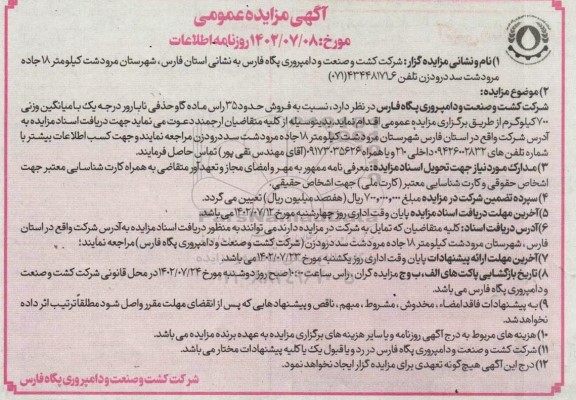 آگهی مزایده عمومی
مورخ: ۱۴۰۲/۰۷/۰۸ روزنامه اطلاعات
۱) نام و نشانی مزایده گزار: شرکت کشت و صنعت و دامپروری پگاه فارس به نشانی استان فارس، شهرستان مرودشت کیلومتر ۱۸ جاده
مرودشت سد درودزن تلفن ۶-۴۳۴۴۸۱۷۱ (۰۷۱)
۲) موضوع مزایده:
شرکت کشت و صنعت و دامپروری پگاه فارس در نظر دارد، نسبت به فروش حدود ۳۵ راس ماده گاو حذفی نابارور درجه یک با میانگین وزنی
۷۰۰ کیلوگرم از طریق برگزاری مزایده عمومی اقدام نماید بدینوسیله از کلیه متقاضیان ارجمند دعوت می نماید جهت دریافت اسناد مزایده به
آدرس شرکت واقع در استان فارس شهرستان مرودشت کیلومتر ۱۸ جاده مرودشت سد درودزن مراجعه نمایند و جهت کسب اطلاعات بیشتر با
شماره تلفن های ۰۹۴۲۶۰۰۲۸۳۲ داخلی ۲۱۰ و یا همراه ۰۹۱۷۳۰۳۵۶۲۶ (آقای مهندس نقی پور) تماس حاصل فرمایند.
۳) مدارک مورد نیاز جهت تحویل اسناد مزایده: معرفی نامه ممهور به مهر و امضای مجاز و تعهدآور متقاضی به همراه کارت شناسایی معتبر جهت
اشخاص حقوقی و کارت شناسایی معتبر (کارت ملی) جهت اشخاص حقیقی.
۴) سپرده تضمین شرکت در مزایده مبلغ ۷۰۰,۰۰۰,۰۰۰ ریال (هفتصد میلیون ریال) تعیین می گردد.
۵) آخرین مهلت دریافت اسناد مزایده پایان وقت اداری روز چهارشنبه مورخ ۱۴۰۲/۰۷/۱۲ می باشد.
۶) آدرس دریافت اسناد: کلیه متقاضیان که تمایل به شرکت در مزایده دارند می توانند به منظور دریافت اسناد مزایده به آدرس شرکت واقع در استان
فارس، شهرستان مرودشت کیلومتر ۱۸ جاده مرودشت سد درودزن (شرکت کشت و صنعت و دامپروری پگاه فارس) مراجعه نمایند؛
۷) آخرین مهلت ارائه پیشنهادات پایان وقت اداری روز یکشنبه مورخ ۱۴۰۲/۰۷/۲۳ می باشد.
۸) تاریخ بازگشایی پاکت های الف، ب و ج مزایده گران، راس ساعت ۱۰:۰۰ صبح روز دوشنبه مورخ ۱۴۰۲/۰۷/۲۴ در محل قانونی شرکت کشت و صنعت
و دامپروری پگاه فارس می باشد.
۹) به پیشنهادات فاقد امضاء، مخدوش، مشروط، مبهم، ناقص و پیشنهادهایی که پس از انقضای مهلت مقرر واصل شود مطلقاً ترتیب اثر داده
نخواهد شد.
۱۰) هزینه های مربوط به درج آگهی روزنامه و یا سایر هزینه های برگزاری مزایده به عهده برنده مزایده می باشد.
۱۱) شرکت کشت و صنعت و دامپروری پگاه فارس در رد و یا قبول یک یا کلیه پیشنهادات مختار می باشد.
۱۲) درج این آگهی هیچ گونه تعهدی برای مزایده گزار ایجاد نخواهد نمود.
شرکت کشت و صنعت و دامپروری پگاه فارس